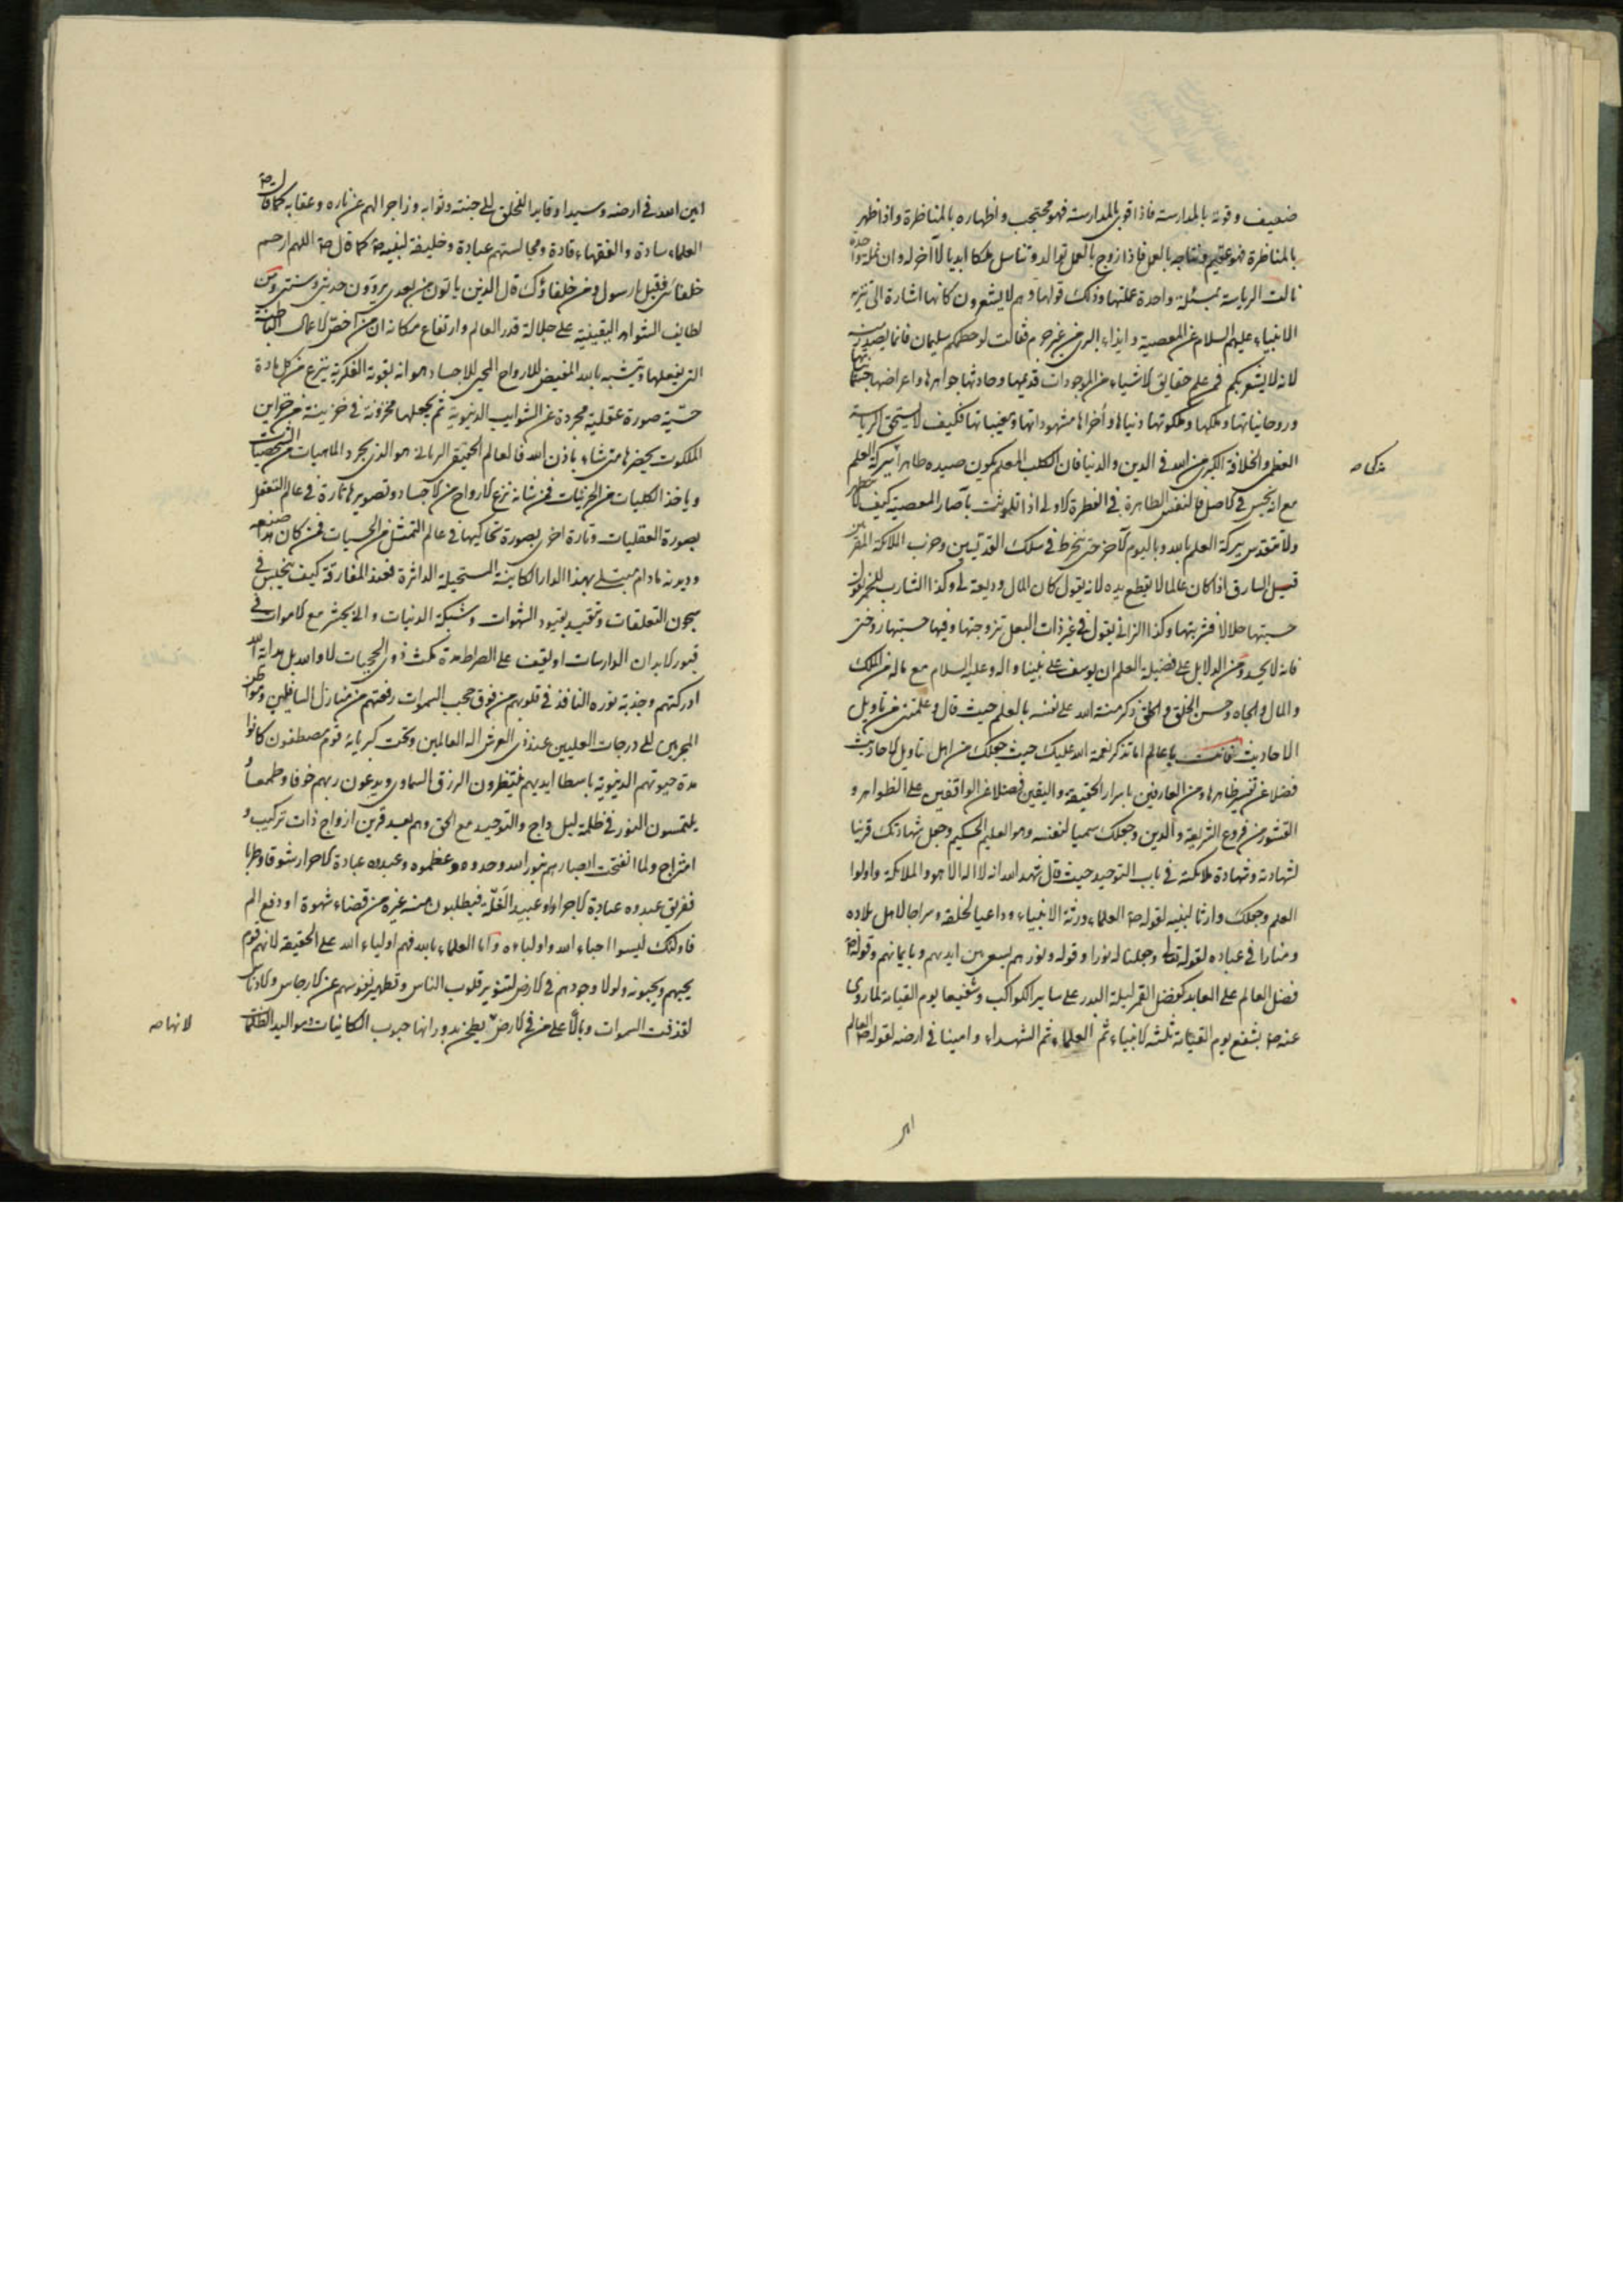 ضعيف وقوته بالمدارسة فاذا قوى بالمدارسة فهو محتجب واظهاره بالمناظرة واذا ظهر
بالمناظرة فهو عقيم ونتاجه بالعمل فاذا زوج بالعمل توالد وتناسل ملكا ابديا لا آخر له وان نملة واحدة
نالت الرياسة بمسئلة واحدة علمتها وذلك قولها وهم لا يشعرون كانها اشارة الى تنزيه
الانبياء عليهم السلام عن المعصية وايذاء البرى من غير جرم فقالت لو حطمكم سليمان فانما يصدر منه
لانه لا يشعر بكم فمن علم حقايق الاشياء من الموجودات قديمها وحادثها جواهرها واعراضها جسمانياتها
وروحانياتها وملكها وملكوتها دنياها وأخراها مشهوداتها ومغيباتها فكيف لا يستحق الرياسة
العظمى والخلافة الكبرى من الله فى الدين والدنيا فان الكلب المعلم يكون صيده طاهرا ببركة العلم
مع انه نجس فى الاصل فالنفس الطاهرة فى الفطرة الاولى اذا تلوثت بآصار المعصية كيف لا تطهر
ولا تتقدس ببركة العلم بالله وباليوم الآخر حتى ينخرط فى سلك القديسين وحزب الملائكة المقربين
قيل السارق اذا كان عالما لا يقطع يده لانه يقول كان المال وديعة لى وكذا الشارب للخمر يقول
حسبتها حلالا فشربتها وكذا الزانى يقول فى غير ذات البعل تزوجتها وفيها حسبتها زوجتى
فانه لا يحد ومن الدلايل على فضيلة العلم ان يوسف على نبينا واله وعليه السلام مع ما له من الملك
والمال والجاه وحسن الخلق والخلق ذكر منة الله على نفسه بالعلم حيث قال وعلمتنى من تاويل
الاحاديث فانت يا عالم اما تذكر نعمة الله عليك حيث جعلك من اهل تاويل الاحاديث
فضلا عن تفسير ظاهرها ومن العارفين باسرار الحقيقة واليقين فضلا عن الواقفين على الظواهر و
القشور من فروع الشريعة والدين وجعلك سميا لنفسه وهو العليم الحكيم وجعل شهادتك قرينا
لشهادته وشهادة ملائكته فى باب التوحيد حيث قال شهد الله انه لا اله الا هو والملائكة واولوا
العلم وجعلك وارثا لنبيه لقوله ص العلماء ورثة الانبياء وداعيا لخلقه وسراجا لاهل بلاده
ومنارا فى عباده لقوله تعالى وجعلنا له نورا وقوله ونورهم يسعى بين ايديهم وبايمانهم وقوله ص
فضل العالم على العابد كفضل القمر ليلة البدر على ساير الكواكب وشفيعا يوم القيامة لما روى
عنه ص يشفع يوم القيامة ثلثة الانبياء ثم العلماء ثم الشهداء وامينا فى ارضه لقوله ص العالم
امين الله فى ارضه وسيدا وقايدا للخلق الى جنته وثوابه وزاجرا لهم عن ناره وعقابه كما قال ص
العلماء سادة والفقهاء قادة ومجالستهم عبادة وخليفة لنبيه ص كما قال ص اللهم ارحم
خلفائى فقيل يا رسول ومن خلفاؤك قال الذين ياتون من بعدى يروون حديثى وسنتى ومن
لطايف الشواهد اليقينية على جلالة قدر العالم وارتفاع مكانه ان من اخص الاعمال الباطنية
التى يفعلها ويتشبه بالله المفيض للارواح المحيى للاجساد هو انه بقوته الفكرية ينزع من كل مادة
حسّية صورة عقلية مجردة عن الشوايب الدنيوية ثم يجعلها مخزونة فى خزينة من خزاين
الملكوت يحضرها متى شاء باذن الله فالعالم الحقيقى الربانى هو الذى يجرد الماهيات من الشخصيات
وياخذ الكليات من الجزئيات فمن شانه نزع الارواح من الاجساد وتصويرها تارة فى عالم التعقل
بصورة العقليات وتارة اخرى بصورة تحاكيها فى عالم التمثل من الحسيات فمن كان هذا صنعه
وديدنه مادام مبتلى بهذا الدار الكاينة المستحيلة الداثرة فعند المفارقة كيف ينحبس فى
سجون التعلقات وتقيد بقيود الشهوات وشبكة الدنيات وانى يحشر مع الاموات فى
قبور الابدان الدارسات او يقف على الصراط مدة مكث ذوى الحجبيات لا والله بل هداية الله
ادركتهم وجذبة نوره النافذ فى قلوبهم من فوق حجب السموات رفعتهم من منازل السافلين وموطن
المجرمين الى درجات العليين عند ذى العرش اله العالمين وتحت كبريائه قوم مصطفون كانوا
مدة حيوتهم الدنيوية باسطا ايديهم ينتظرون الرزق السماوى ويدعون ربهم خوفا وطمعا
يلتمسون النور فى ظلمة ليل داج والتوحيد مع الحق وهم بعد قرين ازواج ذات تركيب و
امتزاج ولما انفتحت ابصارهم بنور الله وحدوه وعظموه وعبدوه عبادة الاحرار شوقا وطربا
ففريق عبدوه عبادة الاجراء او عبيد الغلّة فيطلبون منه غيره من قضاء شهوة او دفع الم
فاولئك ليسوا احباء الله واولياءه واما العلماء بالله فهم اولياء الله على الحقيقة لانهم قوم
يحبهم ويحبونه ولولا وجودهم فى الارض لتنوير قلوب الناس وتطهير نفوسهم عن الارجاس والادناس
لقذفت السموات وبالا على من فى الارض يطحن بدورانها حبوب الكائنات ومواليد الظلمات
لانها ص